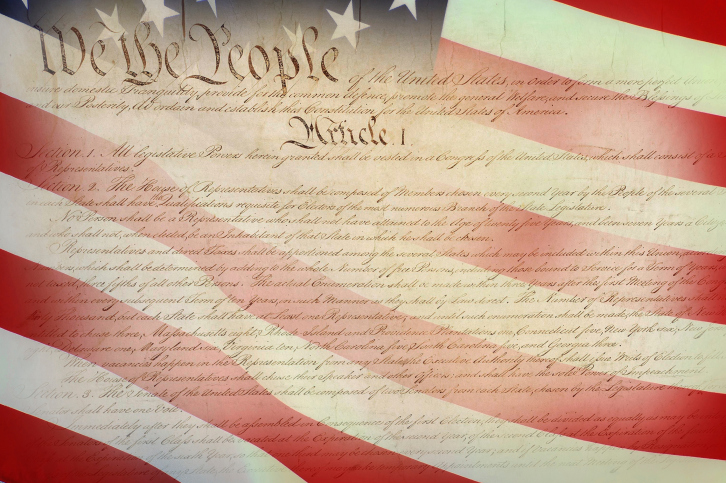 We the People of the United States, in Order to form a more perfect
insure domestic Tranquility, provide for the common defence, promote the general Welfare, and secure the Blessings of
and our Posterity, do ordain and establish this Constitution for the United States of America.
Article I.
Section. 1. All legislative Powers herein granted shall be vested in a Congress of the United States, which shall consist of a
of Representatives.
Section. 2. The House of Representatives shall be composed of Members chosen every second Year by the People of the several
in each State shall have the Qualifications requisite for Electors of the most numerous Branch of the State Legislature.
No Person shall be a Representative who shall not have attained to the Age of twenty five Years, and been seven Years a
and who shall not, when elected, be an Inhabitant of that State in which he shall be chosen.
Representatives and direct Taxes shall be apportioned among the several States which may be included within this Union,
which shall be determined by adding to the whole Number of free Persons, including those bound to Service for a Term of Years,
not taxed, three fifths of all other Persons. The actual Enumeration shall be made within three Years after the first Meeting of the
and within every subsequent Term of ten Years, in such Manner as they shall by Law direct. The Number of Representatives shall
thirty Thousand, but each State shall have at Least one Representative; and until such enumeration shall be made, the State of
entitled to chuse three, Massachusetts eight, Rhode Island and Providence Plantations one, Connecticut five, New York six, New
Delaware one, Maryland six, Virginia ten, North Carolina five, South Carolina five, and Georgia three.
When vacancies happen in the Representation from any State, the Executive Authority thereof shall issue Writs of Election to
The House of Representatives shall chuse their Speaker and other Officers; and shall have the sole Power of Impeachment.
Section. 3. The Senate of the United States shall be composed of two Senators from each State, chosen by the Legislature
shall have one Vote.
Immediately after they shall be assembled in Consequence of the first Election, they shall be divided as equally as may be
of the first Class shall be vacated at the Expiration of the second Year, of the second Class at the Expiration of